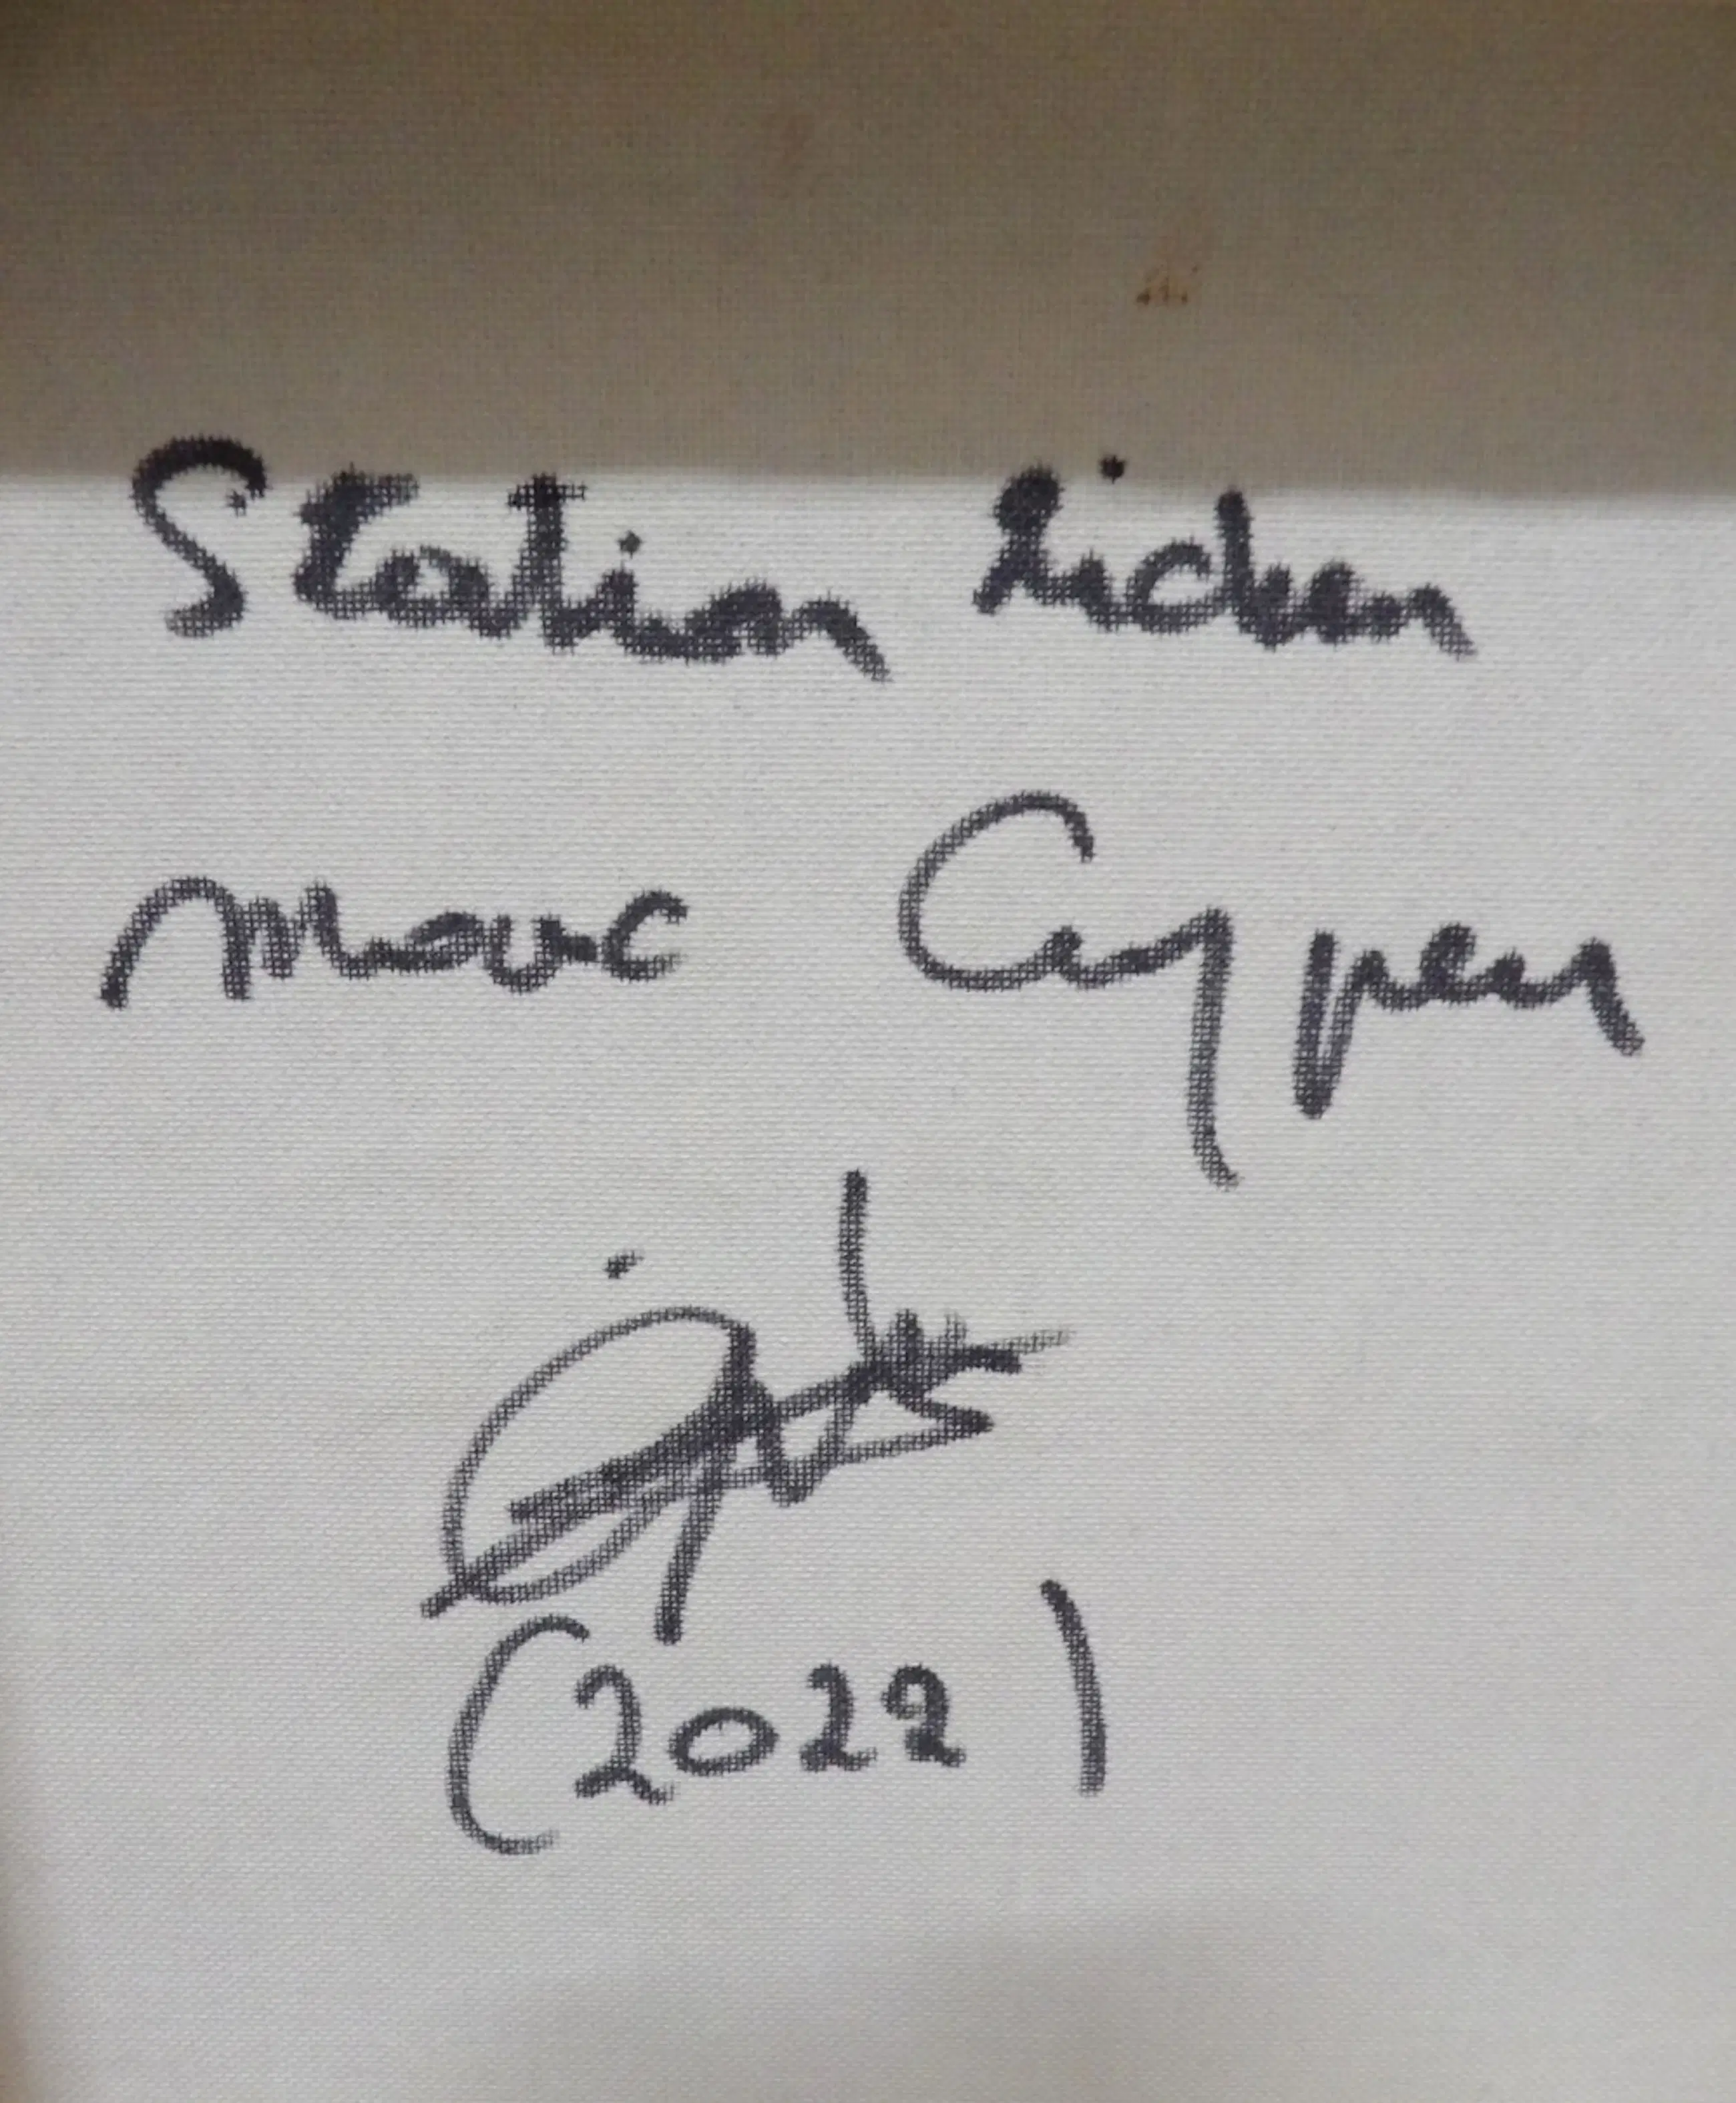 Station Lichen
Marc Cuypers
(2022)